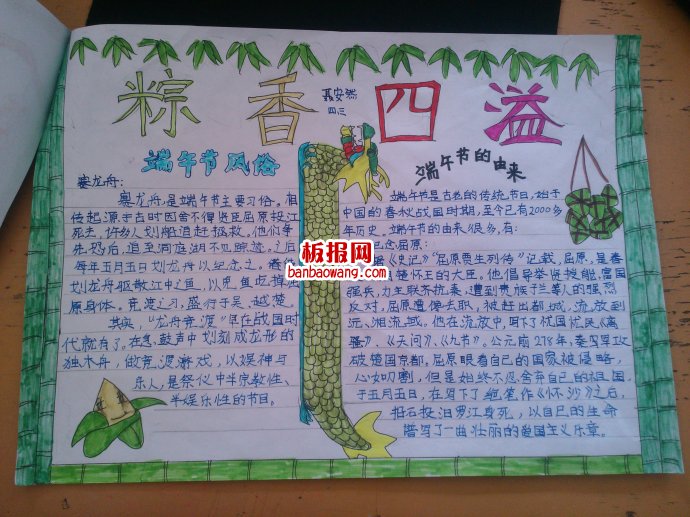 粽香四溢
聂安然
四、三
端午节风俗
赛龙舟：
赛龙舟，是端午节主要习俗。相
传起源于古时因舍不得贤臣屈原投江
死去，许多人划船追赶拯救。他们争
先恐后，追至洞庭湖不见踪迹。之后
每年五月五日划龙舟以纪念之。
划龙舟驱散江中之鱼，以免鱼吃掉屈
原身体。竞渡之习，盛行于吴、越、楚。
其实，"龙舟竞渡"早在战国时
代就有了。在急鼓声中划刻成龙形的
独木舟，做竞渡游戏，以娱神与
乐人，是祭仪中半宗教性、
半娱乐性的节目。
端午节的由来
端午节是古老的传统节日，始于
中国的春秋战国时期，至今已有2000多
年历史。端午节的由来很多，有：
纪念屈原：
据《史记》"屈原贾生列传"记载，屈原，是春
楚怀王的大臣。他倡导举贤授能，富国
强兵，力主联齐抗秦，遭到贵族子兰等人的强烈
反对，屈原遭馋去职，被赶出都城，流放到
沅、湘流域。他在流放中，写下了忧国忧民《离
骚》、《天问》、《九歌》。公元前278年，秦军攻
破楚国京都。屈原眼看自己的国家被侵略，
心如刀割，但是始终不忍舍弃自己的祖国，
于五月五日，在写下了绝笔作《怀沙》之后，
抱石投汨罗江身死，以自己的生命
谱写了一曲壮丽的爱国主义乐章。
板报网
banbaowang.com